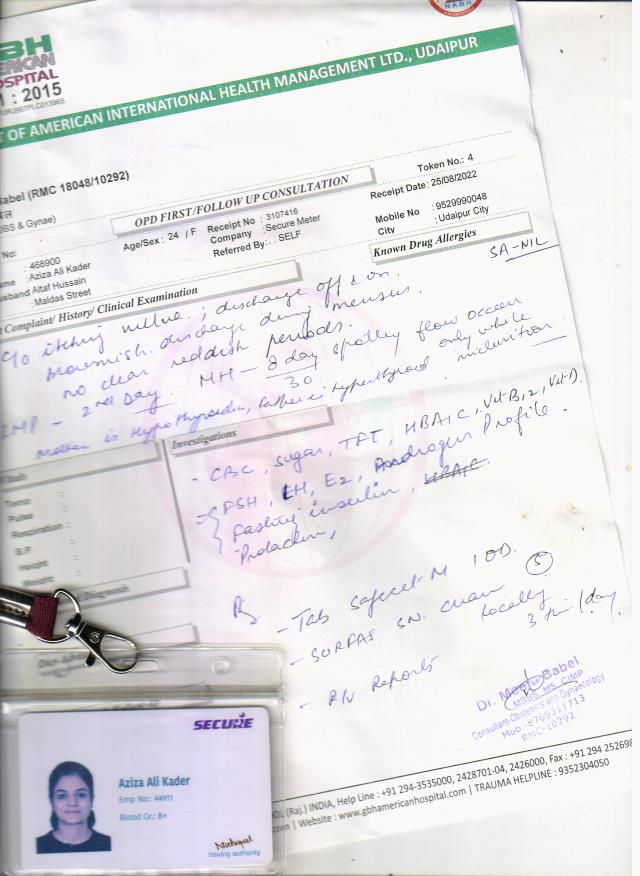 NABH
GBH
AMERICAN
HOSPITAL
: 2015
T OF AMERICAN INTERNATIONAL HEALTH MANAGEMENT LTD., UDAIPUR
Babel (RMC 18048/10292)
OBS & Gynae)
OPD FIRST/FOLLOW UP CONSULTATION
Token No.: 4
No: : 468900
Age/Sex : 24 / F
Receipt No : 3107416
Receipt Date: 25/08/2022
ame : Aziza Ali Kader
Company : Secure Meter
Mobile No : 9529990048
usband Altaf Hussain
Referred By: . SELF
City : Udaipur City
: Maldas Street
Known Drug Allergies
Complaint/ History/ Clinical Examination
SA-NIL
C/o itching vulva ; discharge off & on.
brownish discharge during menses.
no clear reddish periods.
LMP - 2nd Day. MH - 8 day spotty flow
30
only while micturition
Mother is Hypothyroidin, Father is hyperthyroid
Investigations
Temp :
Pulse :
Respiration :
B.P. :
Height :
Weight :
Diagnosis
- CBC, Sugar, TFT, HBA1C, Vit B12, Vit D.
- FSH, LH, E2, Androgen Profile.
Fasting insulin, HBA1C
Prolactin,
Rx - Tab M 1 OD. 5
- SURFAS SN. cream locally
3 time/day
- R/V Reports
Dr. Meetu Babel
MBBS, MS, CIMP
Consultant-Obstetrics and Gynaecology
Mob.-8769311713
RMC-10292
(Raj.) INDIA, Help Line : +91 294-3535000, 2428701-04, 2426000, Fax : +91 294 252698
| Website : www.gbhamericanhospital.com | TRAUMA HELPLINE : 9352304050
SECURE
Aziza Ali Kader
Emp No.: 44911
Blood Gr.: B+
Issuing authority